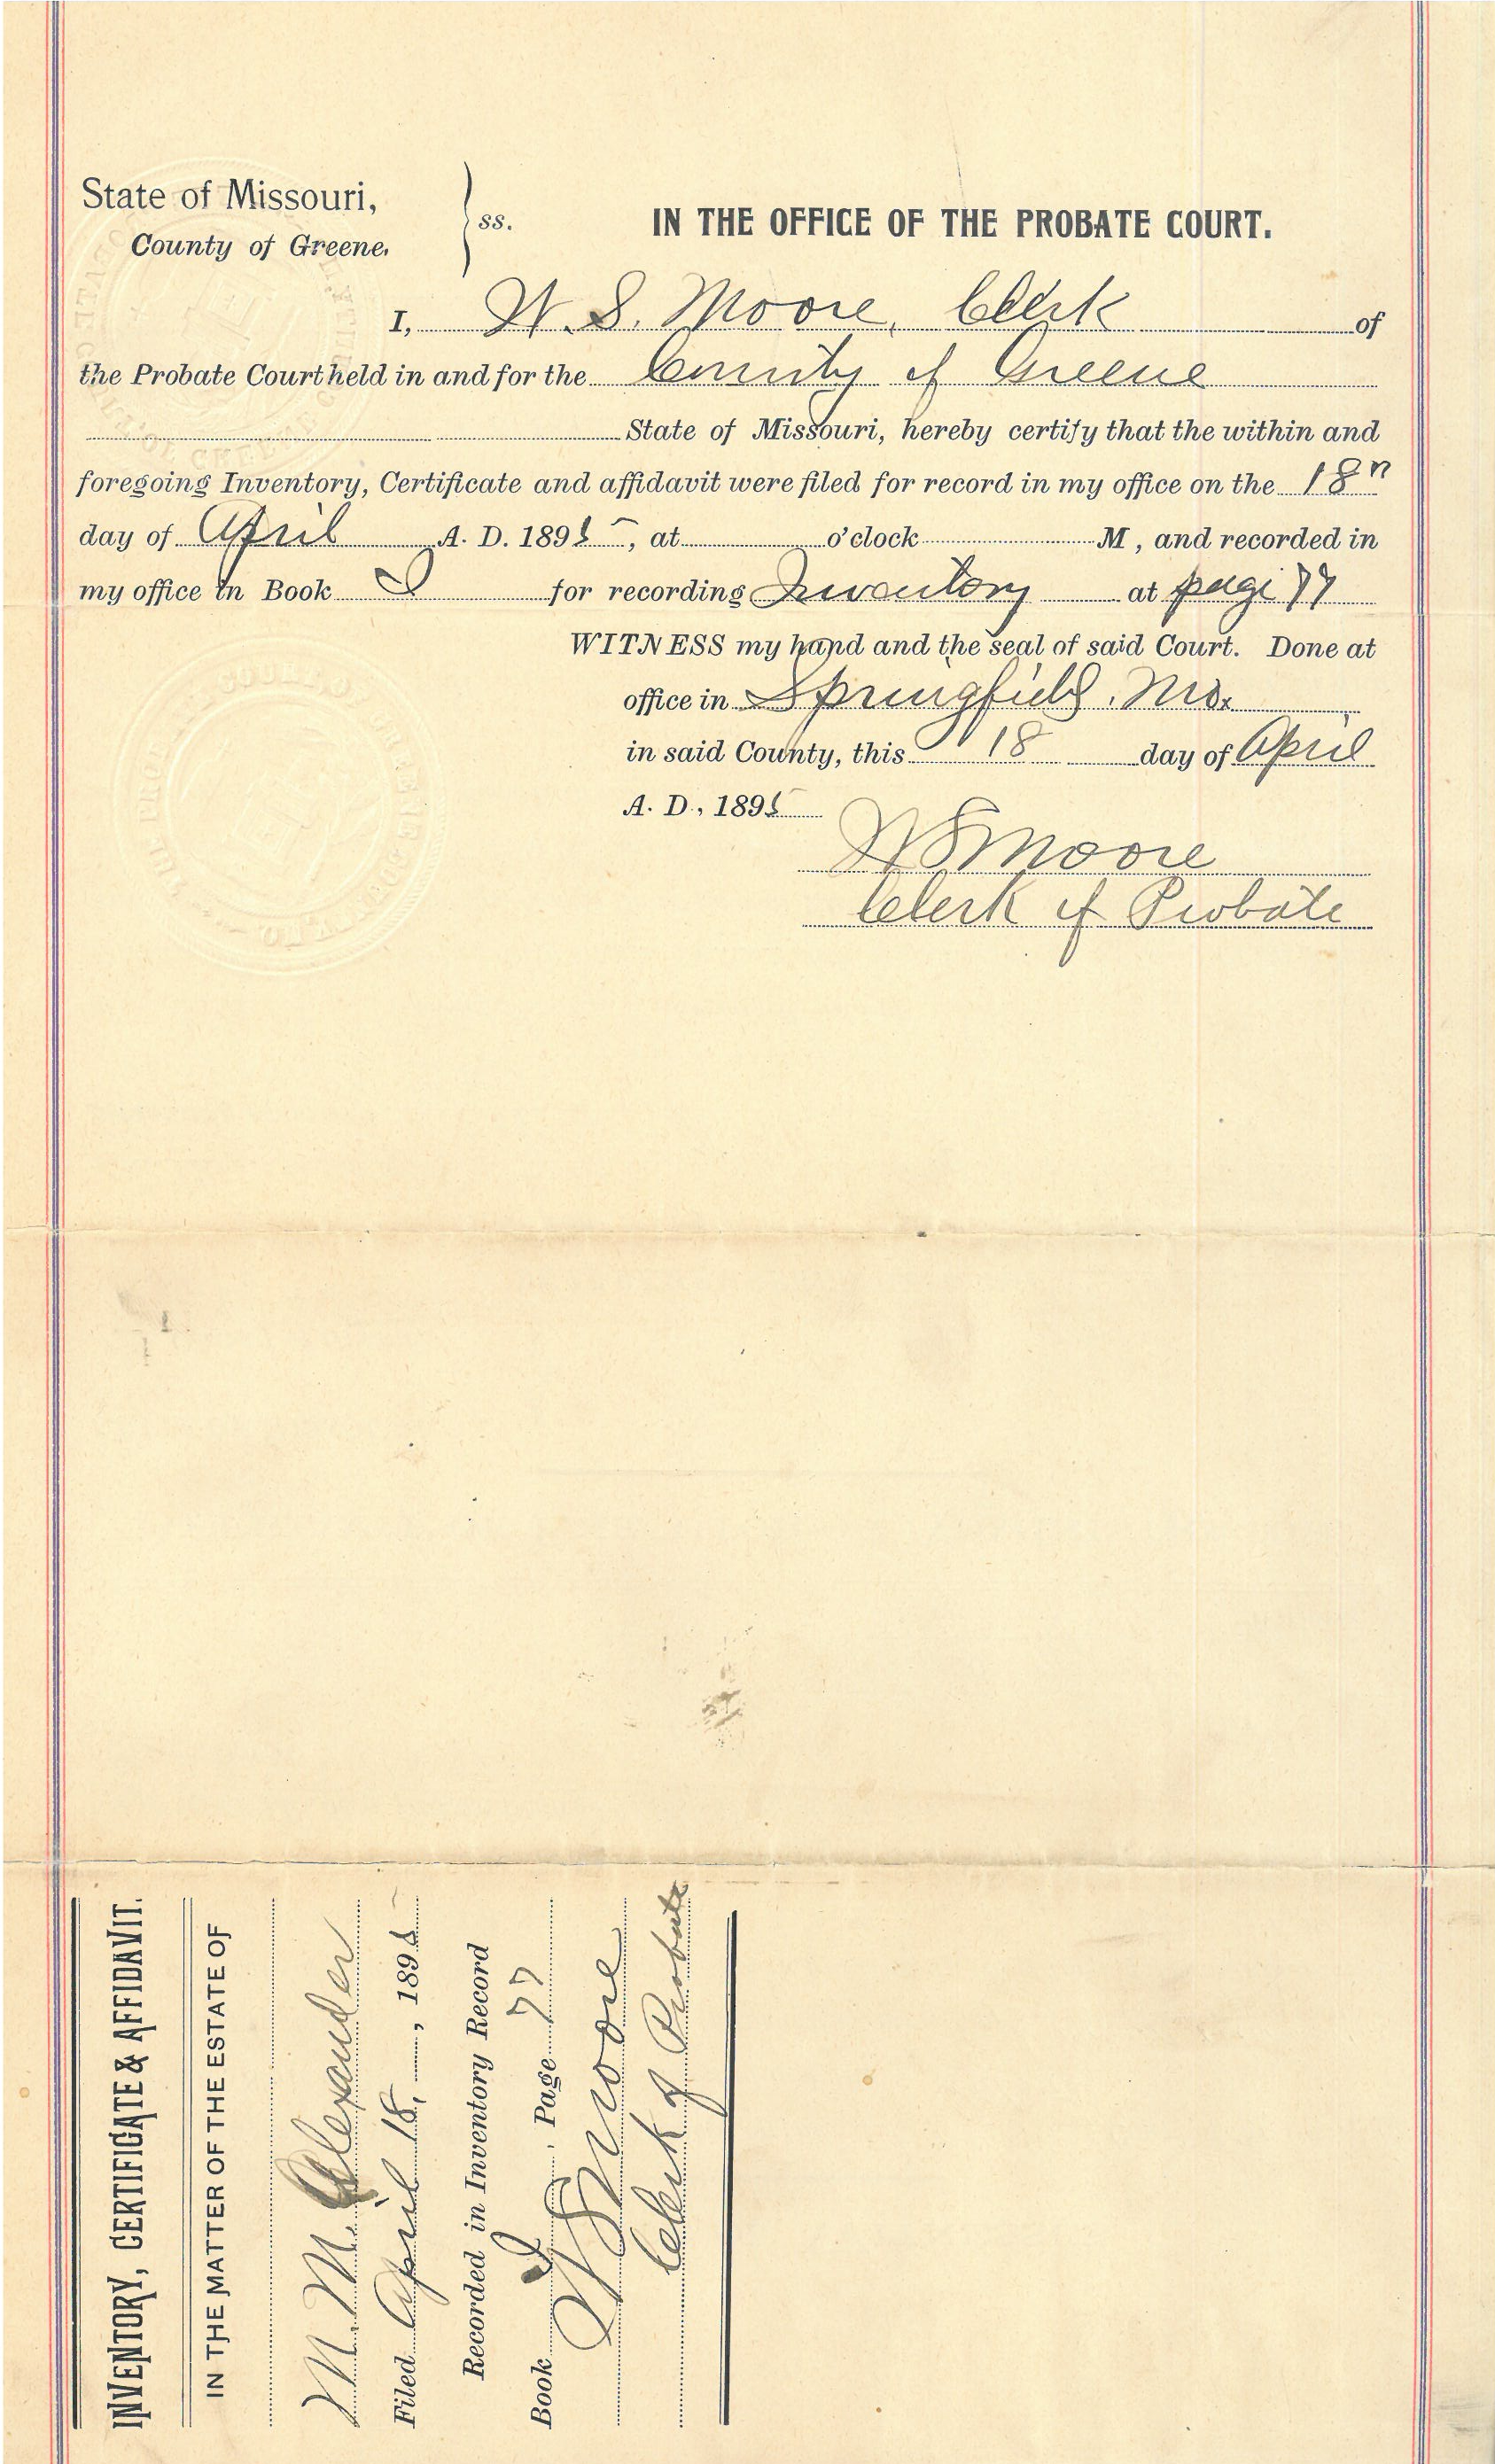 State of Missouri,
County of Greene.
ss.
IN THE OFFICE OF THE PROBATE COURT.
I, W. S. Moore, Clerk of
the Probate Court held in and for the County of Greene
State of Missouri, hereby certify that the within and
foregoing Inventory, Certificate and affidavit were filed for record in my office on the 18"
day of April A. D. 1895, at o'clock M, and recorded in
my office in Book I for recording Inventory at page 77
WITNESS my hand and the seal of said Court. Done at
office in Springfield, Mo.
in said County, this 18 day of April
A. D., 1895
W S Moore
Clerk of Probate
INVENTORY, CERTIFICATE & AFFIDAVIT.
IN THE MATTER OF THE ESTATE OF
M. M. Alexander
Filed April 18, 1895
Recorded in Inventory Record
Book I, Page 77
W S Moore
Clerk of Probate